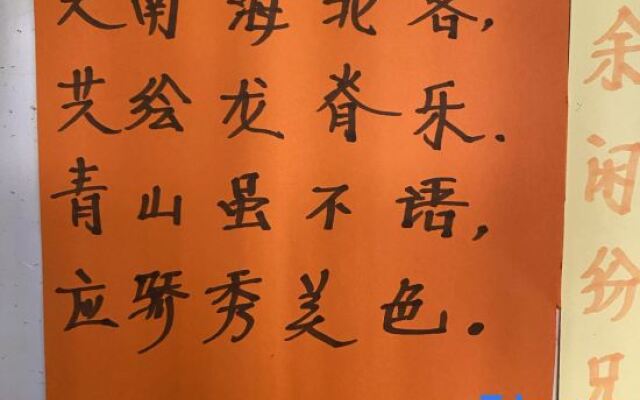 天南海北客，
共绘龙脊乐．
青山虽不语，
应骄秀美色。
余闲纷兄